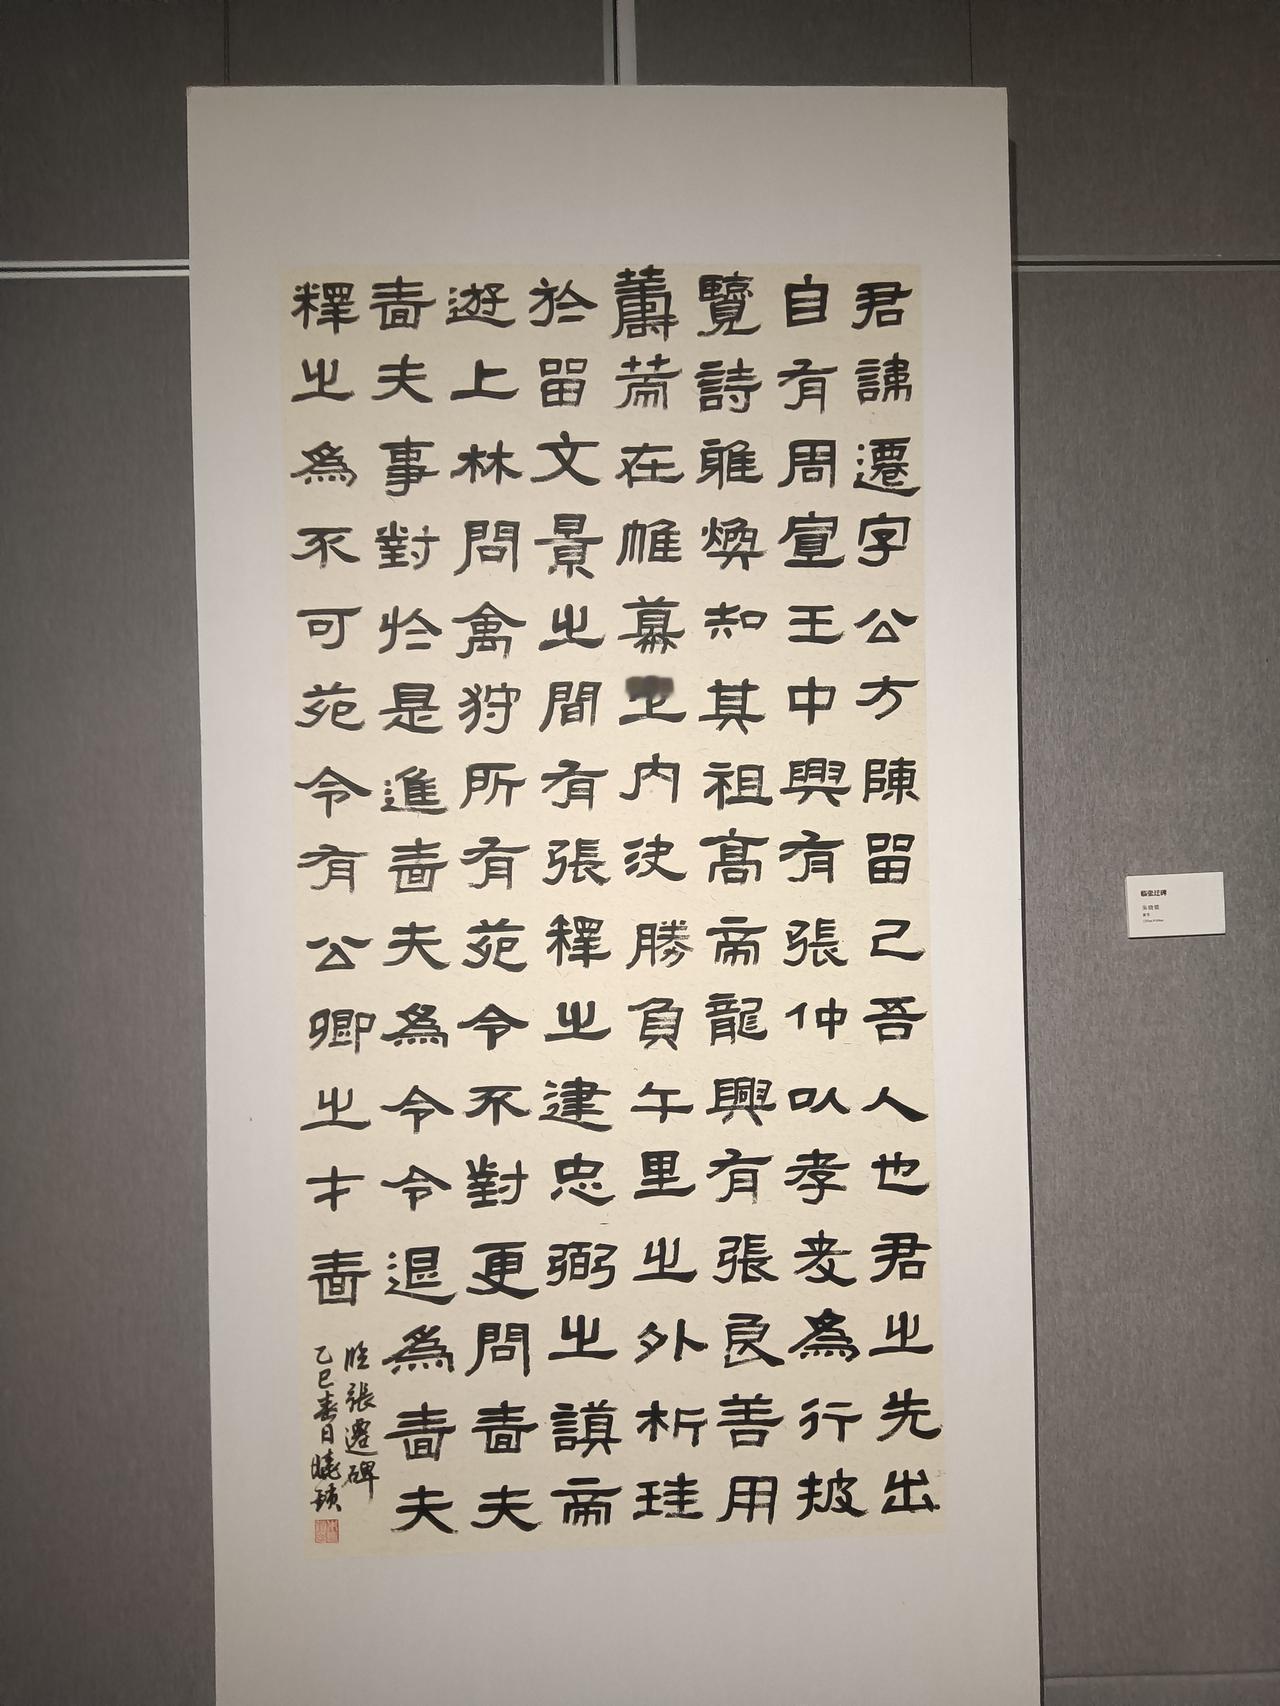 君諱遷字公方陳留己吾人也君之先出
自有周宣王中興有張仲以孝友為行披
覽詩雅煥知其祖高帝龍興有張良善用
籌策在帷幕內決勝負千里之外析珪
於留文景之間有張釋之建忠弼之謨帝
遊上林問禽狩所有苑令不對更問嗇夫
嗇夫事對於是進嗇夫為令令退為嗇夫
釋之為不可苑令有公卿之才嗇
臨張遷碑
乙巳春日曉穎
臨張遷碑